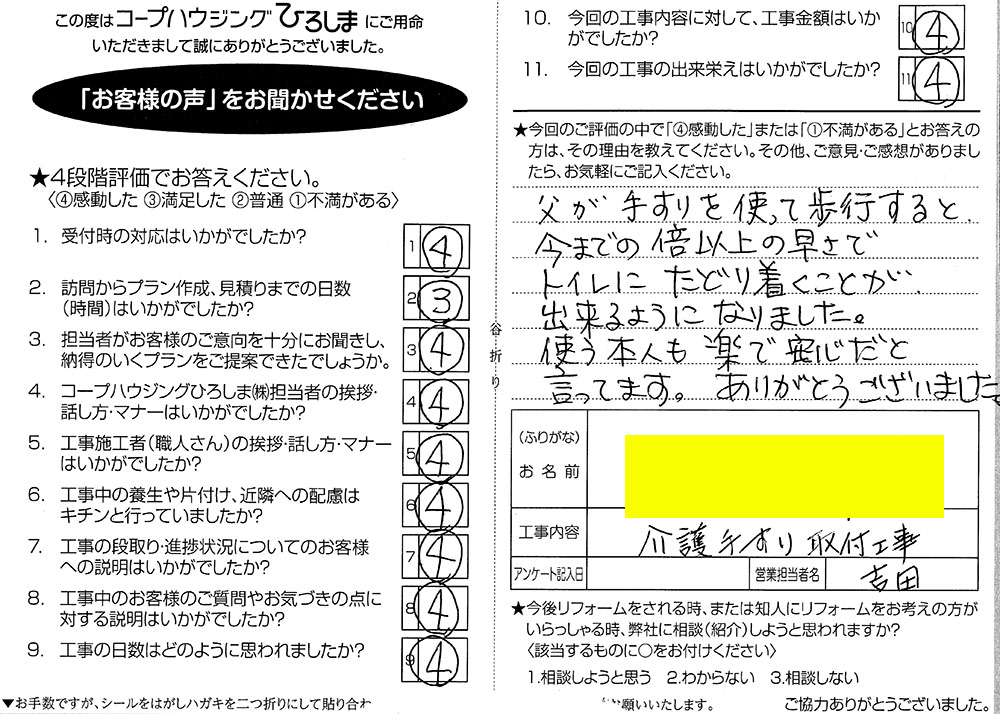 この度はコープハウジングひろしまにご用命
いただきまして誠にありがとうございました。
「お客様の声」をお聞かせください
★4段階評価でお答えください。
〈④感動した ③満足した ②普通 ①不満がある〉
1. 受付時の対応はいかがでしたか?
1 4
2. 訪問からプラン作成、見積りまでの日数
(時間)はいかがでしたか?
2 3
3. 担当者がお客様のご意向を十分にお聞きし、
納得のいくプランをご提案できたでしょうか。
3 4
4. コープハウジングひろしま㈱担当者の挨拶・
話し方・マナーはいかがでしたか?
4 4
5. 工事施工者(職人さん)の挨拶・話し方・マナー
はいかがでしたか?
5 4
6. 工事中の養生や片付け、近隣への配慮は
キチンと行っていましたか?
6 4
7. 工事の段取り・進捗状況についてのお客様
への説明はいかがでしたか?
7 4
8. 工事中のお客様のご質問やお気づきの点に
対する説明はいかがでしたか?
8 4
9. 工事の日数はどのように思われましたか?
9 4
▼お手数ですが、シールをはがしハガキを二つ折りにして貼り合わ
谷折り
10. 今回の工事内容に対して、工事金額はいか
がでしたか?
10 4
11. 今回の工事の出来栄えはいかがでしたか?
11 4
★今回のご評価の中で「④感動した」または「①不満がある」とお答えの
方は、その理由を教えてください。その他、ご意見・ご感想がありまし
たら、お気軽にご記入ください。
父が手すりを使って歩行すると、
今までの倍以上の早さで
トイレにたどり着くことが、
出来るようになりました。
使う本人も楽で安心だと
言ってます。ありがとうございました。
(ふりがな)
お名前
工事内容 介護手すり取付工事
アンケート記入日 営業担当者名 吉田
★今後リフォームをされる時、または知人にリフォームをお考えの方が
いらっしゃる時、弊社に相談(紹介)しようと思われますか?
〈該当するものに○をお付けください〉
1.相談しようと思う 2.わからない 3.相談しない
お願いいたします。
ご協力ありがとうございました。